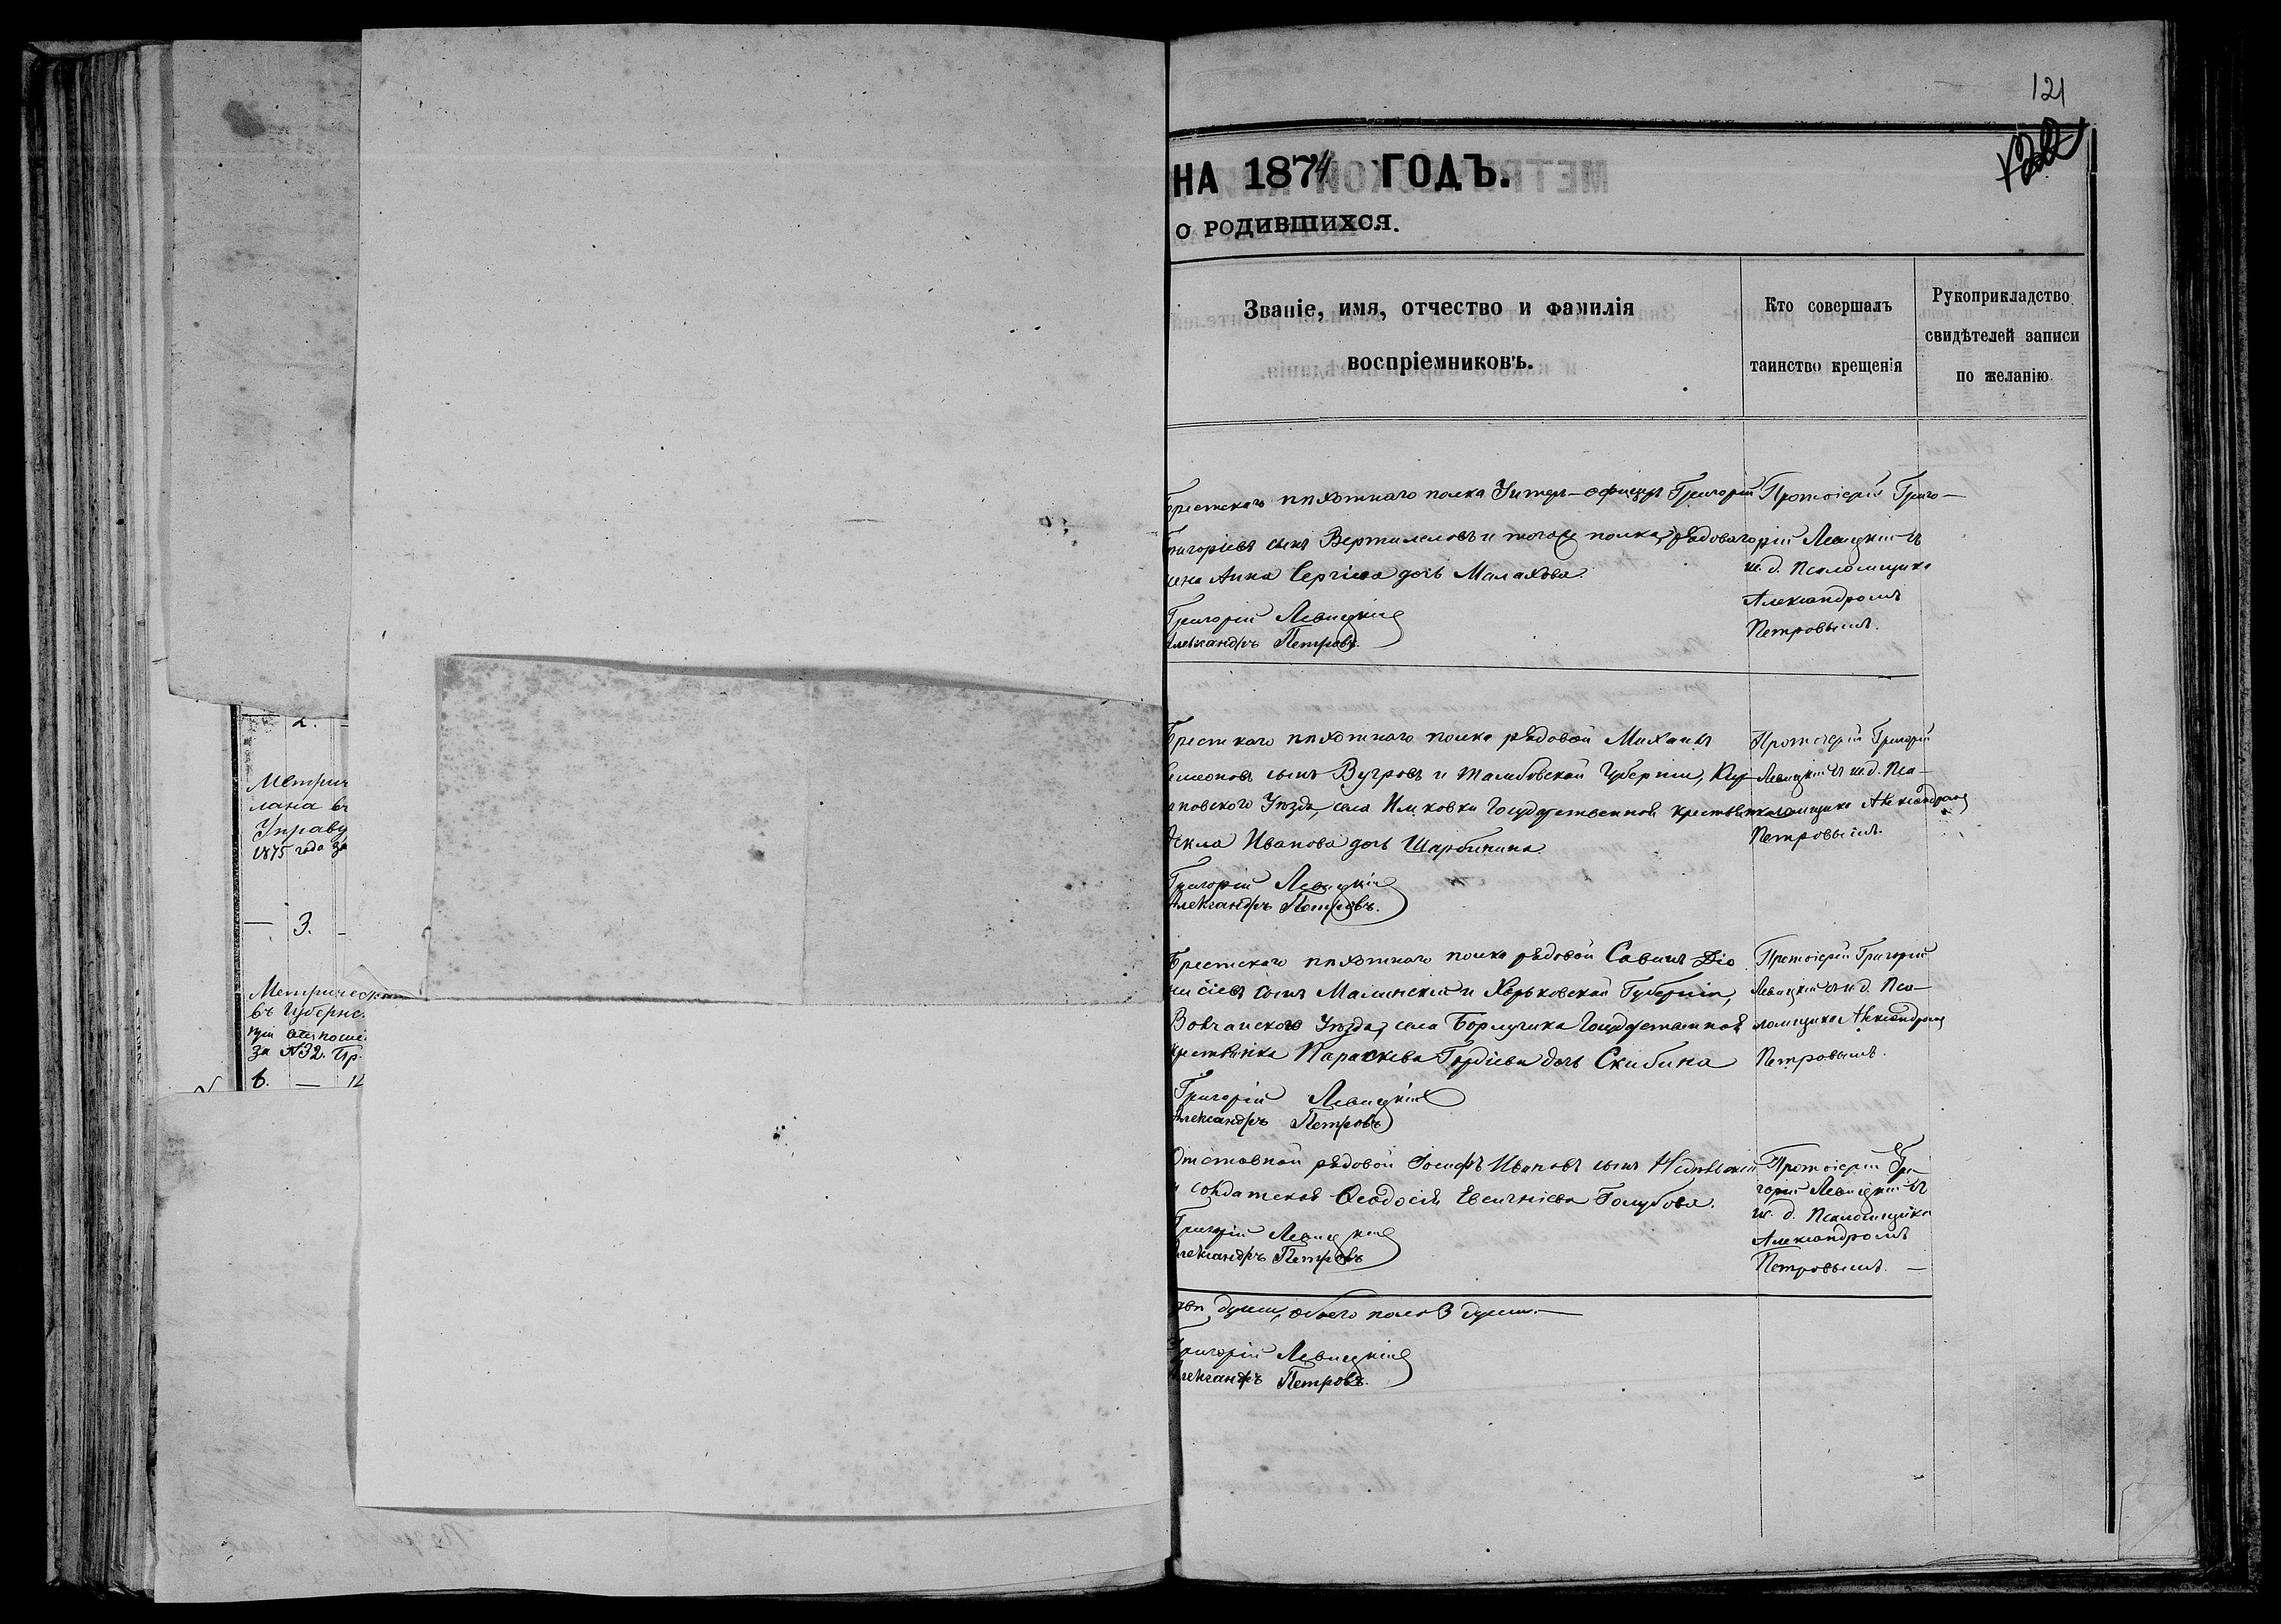 121
122
НА 1874 ГОДЪ.
О РОДИВШИХСЯ.
Званіе, имя, отчество и фамилія
воспріемниковъ.
Кто совершалъ
таинство крещенія
Рукоприкладство
свидѣтелей записи
по желанію.
Брестскаго пѣхотнаго полка Унтеръ-офицеръ Григорій
Григорьевъ сынъ и тогоже полка, рядоваго
жена Анна Сергіева дочь Малахова.
Григорій Левицкій
Александръ Петровъ.
Протоіерей Григо-
рій Левицкій съ
и. д. Псаломщика
Александромъ
Петровымъ.
Брестскаго пѣхотнаго полка рядовой Михаилъ
Симеоновъ сынъ Вугровъ и Тамбовской Губерніи, Кир-
сановскаго Уѣзда, села Государственной крестьянки
Ѳекла Иванова дочь Щарбинина.
Григорій Левицкій
Александръ Петровъ.
Протоіерей Григорій
Левицкій съ и. д. Пса-
ломщика Александромъ
Петровымъ.
Брестскаго пѣхотнаго полка рядовой Савинъ Діо
нисіевъ сынъ Малинскій и Харьковской Губерніи,
Вовчанского Уѣзда, села Государственной
крестьянка Параскева Гордіева дочь Скибина
Григорій Левицкій
Александръ Петровъ
Протоіерей Григорій
Левицкій съ и. д. Пса-
ломщика Александромъ
Петровымъ.
Отставной рядовой Іосифъ Ивановъ сынъ
и солдатская Ѳеодосія Евсигніева Голубова.
Григорій Левицкій
Александръ Петровъ
Протоіерей Гри
горій Левицкій съ
и. д. Псаломщика
Александромъ
Петровымъ. —
двѣ души, обоего пола 3 души. —
Григорій Левицкій
Александръ Петровъ.
2.
Метрич
лана въ
Управу
1875 года за
— 3. —
Метрическ
въ Губернс
за №32. Пр.
6. — 12